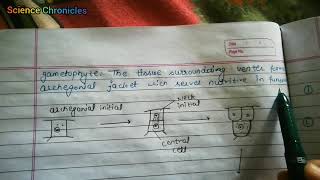 Science Chronicles
Date
Page No.
gametophyte. The tissue surrounding venter form
archegonial jacket wich serves nutritive in
archegonial initial
neck
initial
central
cell